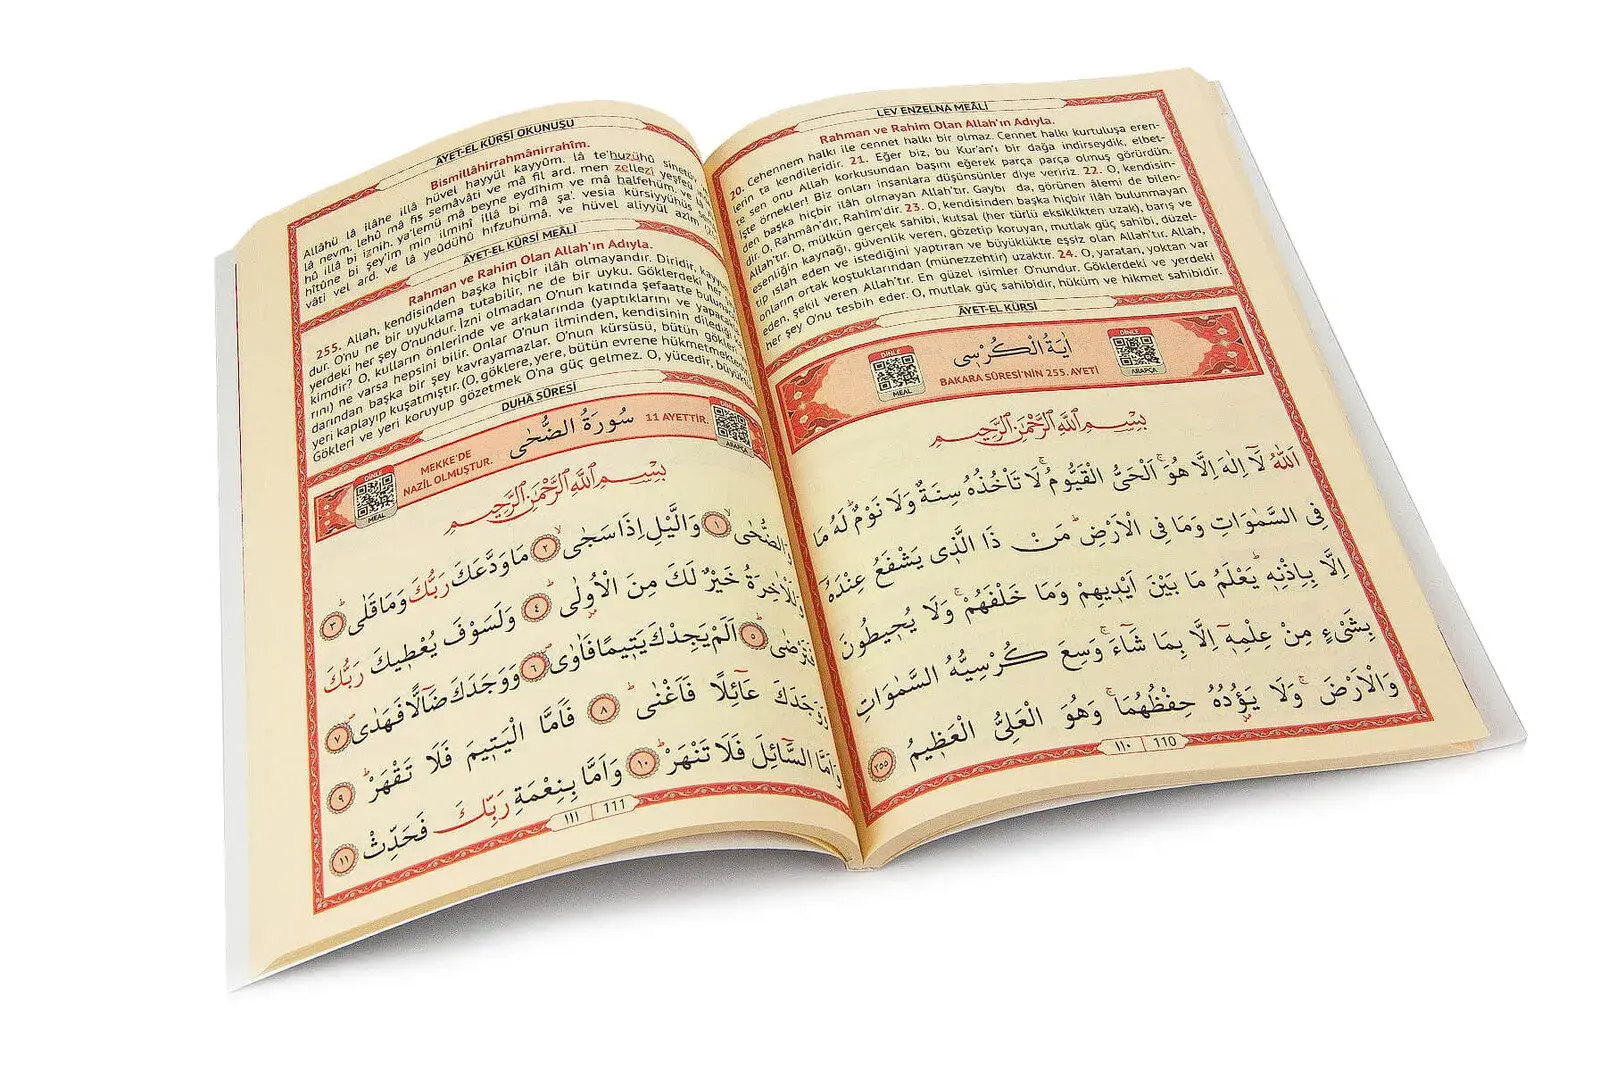 LEV ENZELNA MEÂLİ
Rahman ve Rahim Olan Allah'ın Adıyla.
20. Cehennem halkı ile cennet halkı bir olmaz. Cennet halkı kurtuluşa eren-
lerin ta kendileridir. 21. Eğer biz, bu Kur'an'ı bir dağa indirseydik, elbet-
te sen onu Allah korkusundan başını eğerek parça parça olmuş görürdün.
İşte örnekler! Biz onları insanlara düşünsünler diye veririz. 22. O, kendisin-
den başka hiçbir ilâh olmayan Allah'tır. Gaybı da, görünen âlemi de bilen-
dir. O, Rahmân'dır, Rahîm'dir. 23. O, kendisinden başka hiçbir ilâh bulunmayan
Allah'tır. O, mülkün gerçek sahibi, kutsal (her türlü eksiklikten uzak), barış ve
esenliğin kaynağı, güvenlik veren, gözetip koruyan, mutlak güç sahibi, düzel-
tip ıslah eden ve istediğini yaptıran ve büyüklükte eşsiz olan Allah'tır. Allah,
onların ortak koştuklarından (münezzehtir) uzaktır. 24. O, yaratan, yoktan var
eden, şekil veren Allah'tır. En güzel isimler O'nundur. Göklerdeki ve yerdeki
her şey O'nu tesbih eder. O, mutlak güç sahibidir, hüküm ve hikmet sahibidir.
ÂYET-EL KÜRSİ
DİNLE
MEAL
اٰيَةُ الْكُرْسِى
BAKARA SÛRESİ'NİN 255. AYETİ
DİNLE
ARAPÇA
بِسْمِ اللّٰهِ الرَّحْمٰنِ الرَّحِيمِ
اَللّٰهُ لَٓا اِلٰهَ اِلَّا هُوَۚ اَلْحَىُّ الْقَيُّومُۚ لَا تَأْخُذُهُ سِنَةٌ وَلَا نَوْمٌۜ لَهُ مَا
فِى السَّمٰوَاتِ وَمَا فِى الْاَرْضِۜ مَنْ ذَا الَّذِى يَشْفَعُ عِنْدَهُٓ
اِلَّا بِاِذْنِهِۜ يَعْلَمُ مَا بَيْنَ اَيْدِيهِمْ وَمَا خَلْفَهُمْۚ وَلَا يُحِيطُونَ
بِشَىْءٍ مِنْ عِلْمِهِٓ اِلَّا بِمَا شَٓاءَۚ وَسِعَ كُرْسِيُّهُ السَّمٰوَاتِ
وَالْاَرْضَۚ وَلَا يَؤُدُهُ حِفْظُهُمَاۚ وَهُوَ الْعَلِىُّ الْعَظِيمُ ٢٥٥
١١٠ | 110
ÂYET-EL KÜRSİ OKUNUŞU
Bismillâhirrahmânirrahîm.
Allâhü lâ ilâhe illâ hüvel hayyül kayyûm. lâ te'huzühû sinetüv
lâ nevm. lehû mâ fis semâvâti ve mâ fil ard. men zellezî yeşfeu
hû illâ bi iznih. ya'lemü mâ beyne eydîhim ve mâ halfehüm. ve lâ
hîtûne bi şey'im min ilmihî illâ bi mâ şa'. vesia kürsiyyühüs
vâti vel ard. ve lâ yeûdühû hıfzuhümâ. ve hüvel aliyyül azîm
ÂYET-EL KÜRSİ MEÂLİ
Rahman ve Rahim Olan Allah'ın Adıyla.
255. Allah, kendisinden başka hiçbir ilâh olmayandır. Diridir,
O'nu ne bir uyuklama tutabilir, ne de bir uyku. Göklerdeki her
dur. yerdeki her şey O'nundur. İzni olmadan O'nun katında şefaatte
kimdir? O, kulların önlerinde ve arkalarında (yaptıklarını ve
rını) ne varsa hepsini bilir. Onlar O'nun ilminden, kendisinin dilediği
darından başka bir şey kavrayamazlar. O'nun kürsüsü, bütün gökleri
yeri kaplayıp kuşatmıştır. (O, göklere, yere, bütün evrene hükmetmektedir.)
Gökleri ve yeri koruyup gözetmek O'na güç gelmez. O, yücedir, büyüktür.
DUHÂ SÛRESİ
DİNLE
MEAL
MEKKE'DE
NAZİL OLMUŞTUR.
سُورَةُ الضُّحٰى
11 AYETTİR.
ARAPÇA
بِسْمِ اللّٰهِ الرَّحْمٰنِ الرَّحِيمِ
وَالضُّحٰىۙ ١ وَالَّيْلِ اِذَا سَجٰىۙ ٢ مَا وَدَّعَكَ رَبُّكَ وَمَا قَلٰىۜ ٣
وَلَلْاٰخِرَةُ خَيْرٌ لَكَ مِنَ الْاُو۫لٰىۜ ٤ وَلَسَوْفَ يُعْطِيكَ رَبُّكَ
فَتَرْضٰىۜ ٥ اَلَمْ يَجِدْكَ يَتِيمًا فَاٰوٰىۖ ٦ وَوَجَدَكَ ضَٓالًّا فَهَدٰىۖ ٧
وَوَجَدَكَ عَٓائِلًا فَاَغْنٰىۜ ٨ فَاَمَّا الْيَتِيمَ فَلَا تَقْهَرْۜ ٩
وَاَمَّا السَّٓائِلَ فَلَا تَنْهَرْۜ ١٠ وَاَمَّا بِنِعْمَةِ رَبِّكَ فَحَدِّثْ ١١
١١١ | 111